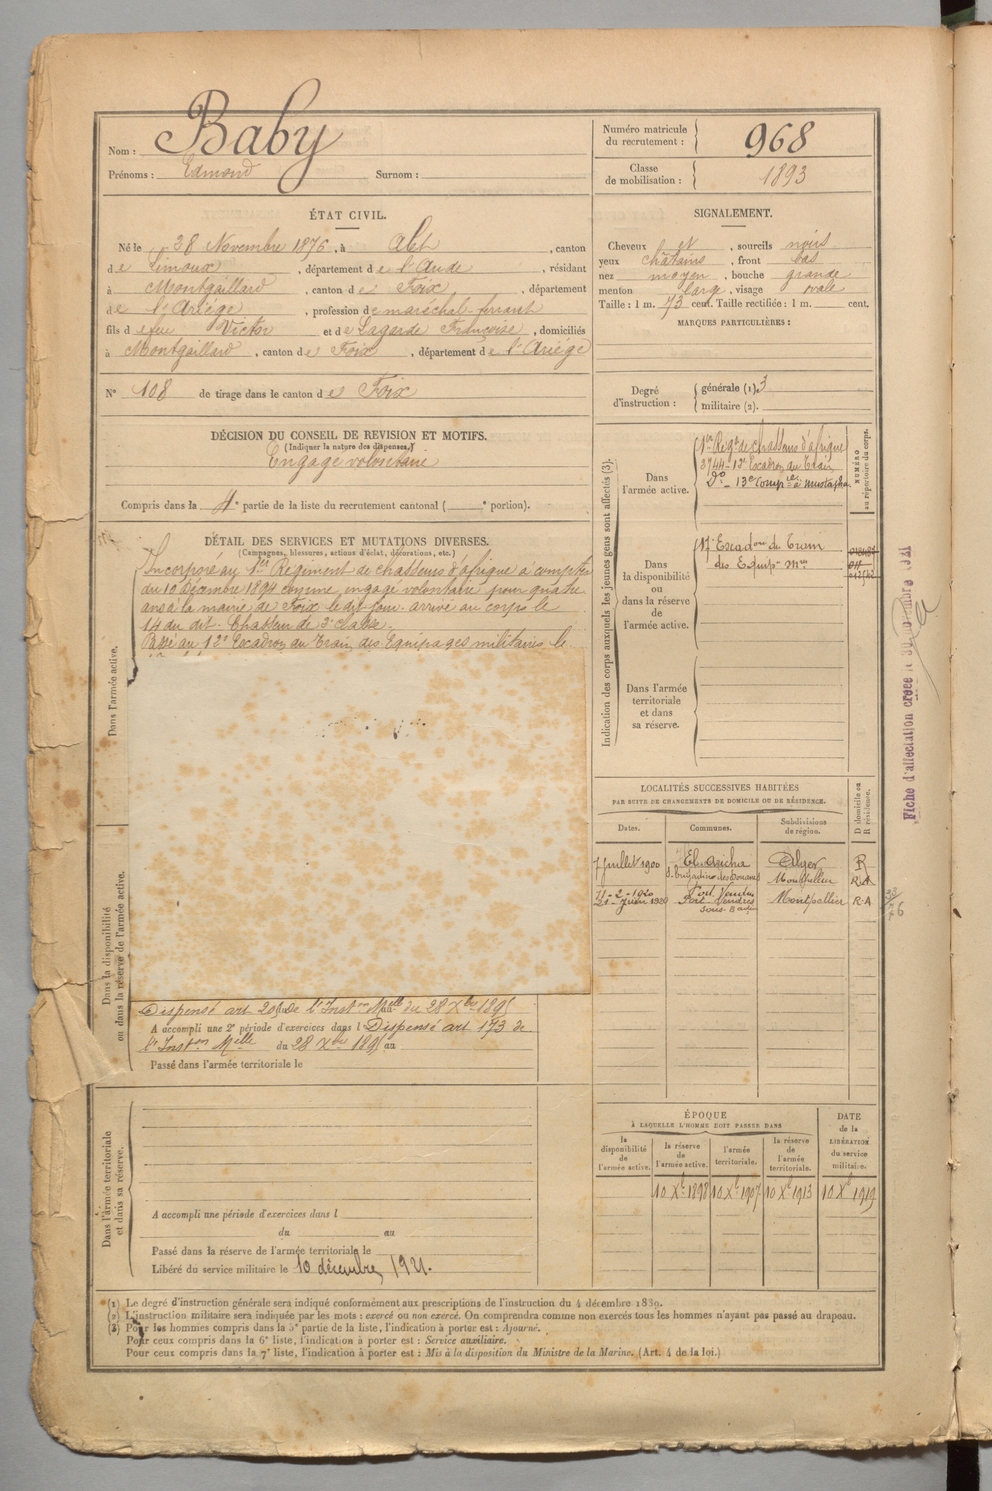 Nom : Baby
Prénoms : Edmond Surnom :
Numéro matricule du recrutement : 968
Classe de mobilisation : 1893
ÉTAT CIVIL.
Né le 28 Novembre 1876, à Alet, canton
de Limoux, département de l'Aude, résidant
à Montgaillard, canton de Foix, département
de l'Ariège, profession de maréchal-ferrant
fils de feu Victor et de Lagarde Françoise, domiciliés
à Montgaillard, canton de Foix, département de l'Ariège
N° 108 de tirage dans le canton de Foix
SIGNALEMENT.
Cheveux et, sourcils noirs
yeux châtains, front bas
nez moyen, bouche grande
menton large, visage ovale
Taille : 1 m. 73 cent. Taille rectifiée : 1 m. cent.
MARQUES PARTICULIÈRES :
Degré d'instruction : générale (1). 3
militaire (2).
DÉCISION DU CONSEIL DE REVISION ET MOTIFS.
(Indiquer la nature des dispenses.)
Engagé volontaire
Compris dans la 4e partie de la liste du recrutement cantonal ( e portion).
DÉTAIL DES SERVICES ET MUTATIONS DIVERSES.
(Campagnes, blessures, actions d'éclat, décorations, etc.)
Incorporé au 1er Régiment de chasseurs d'afrique à compter
du 10 Décembre 1894 comme engagé volontaire pour quatre
ans à la mairie de Foix le dit jour. arrivé au corps le
14 du dit. Chasseur de 2e classe.
Passé au 12e Escadron du Train des Equipages militaires le
Dans l'armée active.
Dans la disponibilité
ou dans la réserve de l'armée active.
Dispensé art 20 de l'Inston Mlle du 28 Xbre 1895
A accompli une 2e période d'exercices dans l Dispensé art 173 de
l'Inston Mlle du 28 Xbre 1895 au
Passé dans l'armée territoriale le
Dans l'armée territoriale
et dans sa réserve.
A accompli une période d'exercices dans l
du au
Passé dans la réserve de l'armée territoriale le
Libéré du service militaire le 10 décembre 1921.
Indication des corps auxquels les jeunes gens sont affectés (3).
NUMÉRO
au répertoire du corps.
Dans
l'armée active.
1er Régt de chasseurs d'afrique
3744 - 12e Escadron du Train
Do - 13e Compie à Mustapha
Dans
la disponibilité
ou
dans la réserve
de
l'armée active.
17e Escadron du Train
des Equip. Mres
Dans l'armée
territoriale
et dans
sa réserve.
LOCALITÉS SUCCESSIVES HABITÉES
PAR SUITE DE CHANGEMENTS DE DOMICILE OU DE RÉSIDENCE.
Dates. Communes. Subdivisions de région. D domicile ou R résidence.
7 Juillet 1900 El-Aricha Alger R
Montpellier R.A
11-2-1920 Port Vendres
21 - Juin 1920 Port-Vendres Montpellier R.A
ÉPOQUE
À LAQUELLE L'HOMME DOIT PASSER DANS
DATE
de la
LIBÉRATION
du service
militaire.
la disponibilité de l'armée active.
la réserve de l'armée active.
l'armée territoriale.
la réserve de l'armée territoriale.
10 Xbre 1898 10 Xbre 1907 10 Xbre 1913 10 Xbre 1919
Fiche d'affectation créée le 30 novembre 1921
(1) Le degré d'instruction générale sera indiqué conformément aux prescriptions de l'instruction du 4 décembre 1889.
(2) L'instruction militaire sera indiquée par les mots : exercé ou non exercé. On comprendra comme non exercés tous les hommes n'ayant pas passé au drapeau.
(3) Pour les hommes compris dans la 5e partie de la liste, l'indication à porter est : Ajourné.
Pour ceux compris dans la 6e liste, l'indication à porter est : Service auxiliaire.
Pour ceux compris dans la 7e liste, l'indication à porter est : Mis à la disposition du Ministre de la Marine. (Art. 4 de la loi.)